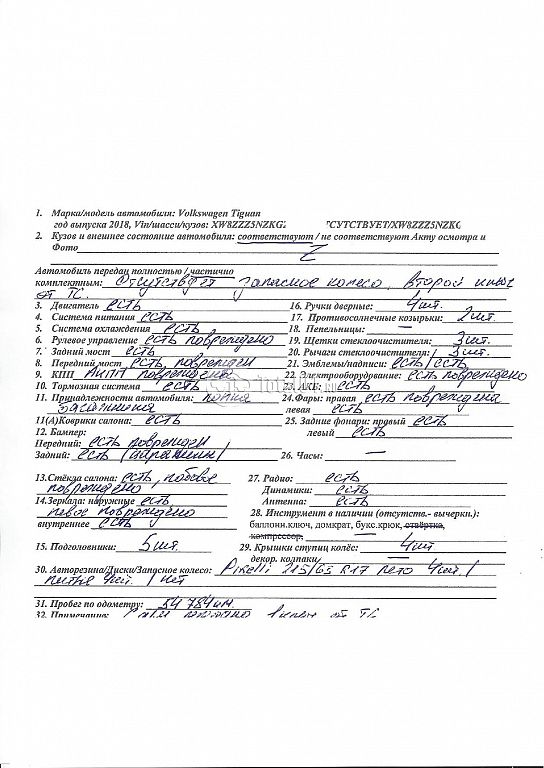 1. Марка/модель автомобиля: Volkswagen Tiguan
год выпуска 2018, Vin/шасси/кузов: XW8ZZZ5NZKG ТСУТСТВУЕТ/XW8ZZZ5NZKG
2. Кузов и внешнее состояние автомобиля: соответствуют / не соответствуют Акту осмотра и
Фото Z
Автомобиль передан полностью / частично
комплектным: Отсутствует запасное колесо, второй ключ
от ТС.
3. Двигатель есть 16. Ручки дверные: 4 шт.
4. Система питания есть 17. Противосолнечные козырьки: 2 шт.
5. Система охлаждения есть 18. Пепельницы: —
6. Рулевое управление есть повреждено 19. Щетки стеклоочистителя: 3 шт.
7. Задний мост есть 20. Рычаги стеклоочистителя: 3 шт.
8. Передний мост есть, поврежден 21. Эмблемы/надписи: есть / есть
9. КПП АКПП повреждена 22. Электрооборудование: есть повреждено
10. Тормозная система есть 23. АКБ: есть
11. Принадлежности автомобиля: 24.Фары: правая есть повреждена
левая есть
11(А)Коврики салона: есть 25. Задние фонари: правый есть
12. Бампер: левый есть
Передний: есть поврежден
Задний: есть (царапины) 26. Часы: —
13.Стёкла салона: есть, лобовое 27. Радио: есть
повреждено Динамики: есть
14.Зеркала: наружные есть, Антенна: есть
левое повреждено 28. Инструмент в наличии (отсутств.- вычеркн.):
внутреннее есть баллонн.ключ, домкрат, букс.крюк, отвёртка,
компрессор,
15. Подголовники: 5 шт. 29. Крышки ступиц колёс: 4 шт.
декор. колпаки —
30. Авторезина/Диски/Запасное колесо: Pirelli 215/65 R17 лето 4 шт. /
литые 4 шт. / нет
31. Пробег по одометру: 54 784 км.
32. Примечание: 1 ключ от ТС